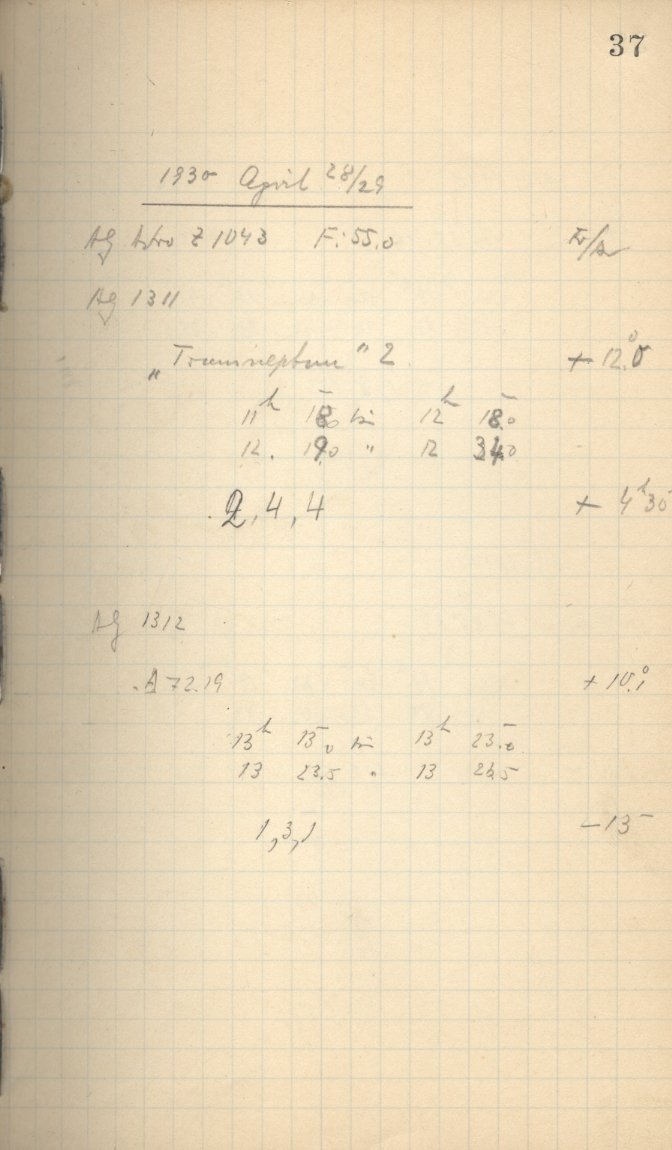 37
1930 April 28/29
AG Astro Z 1043 F: 55,0
AG 1311
„Transneptun" 2 + 12.0°
11h 18,0 bis 12h 18,0
12. 19,0 " 12 34,0
2, 4, 4 + 4h 30
AG 1312
A 72.19 + 10.1°
13h 15,0 bis 13h 23,0
13 23.5 " 13
1, 3, 1 – 15